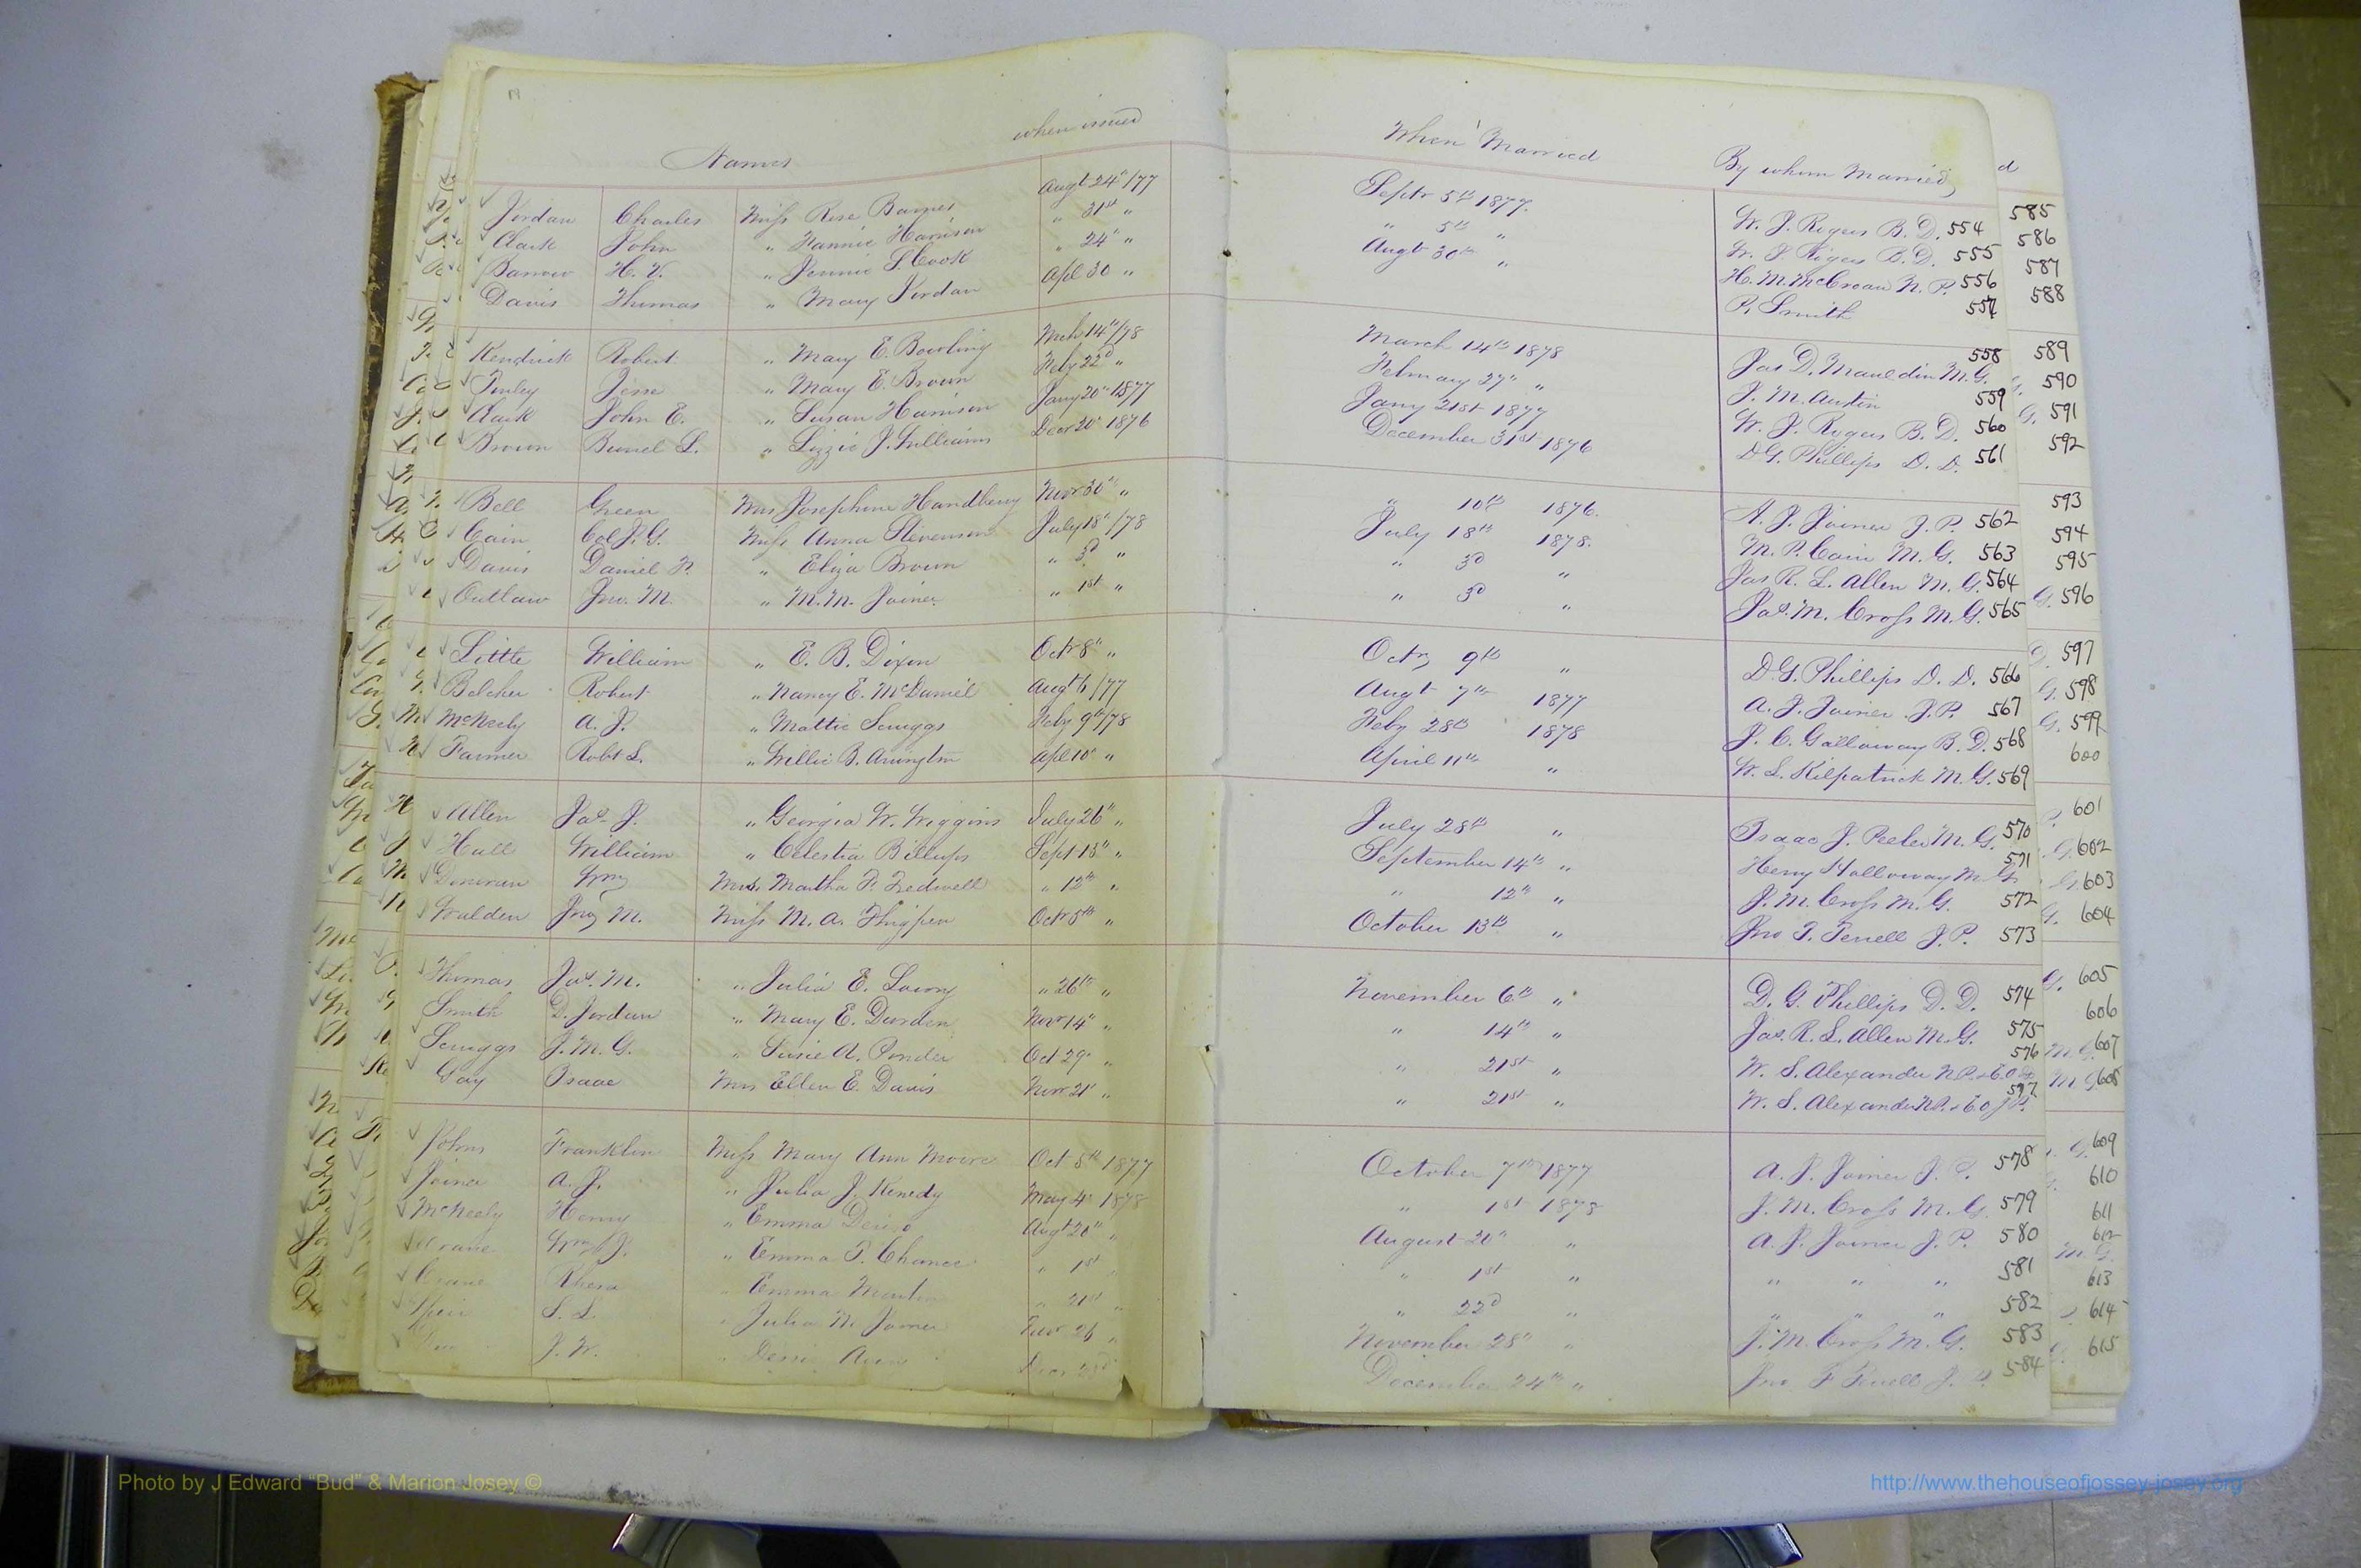 Names when issued When Married By whom Married
Jordan Charles Miss Rose Barnes Augt 24" /77 Septr 5th 1877. W. J. Rogers B. D. 554
Clark John " Fannie Harrison " 31st " " 5th " W. J. Rogers B. D. 555
Barrow H. V. " Jennie S. Cook " 24" " Augt 30th " H. M. McCroan N. P. 556
Davis Thomas " Mary Jordan Apl 30 " P. Smith 557
Kendrick Robert " Mary E. Bowling Mch 14th/78 March 14th 1878 Jas D. Mauldin M. G. 558
Finley Jesse " Mary E. Brown Feby 22d " February 27" " J. M. Austin 559
Clark John E. " Susan Harrison Jany 20" 1877 Jany 21st 1877 W. J. Rogers B. D. 560
Brown Burrel L. " Lizzie J. Williams Decr 20" 1876 December 31st 1876 D. G. Phillips D. D. 561
Bell Green Mrs Josephine Handberry Novr 30th " " 10th 1876. A. J. Joiner J. P. 562
Cain Col J. G. Miss Anna Stevenson July 18" /78 July 18th 1878. M. P. Cain M. G. 563
Davis Daniel P. " Eliza Brown " 3d " " 3d " Jas R. L. Allen M. G. 564
Outlaw Jno. M. " M. M. Joiner " 1st " " 3d " Jas. M. Cross M. G. 565
Little William " E. B. Dixon Octr 8" " Octr, 9th " D. G. Phillips D. D. 566
Belcher Robert " Nancy E. McDaniel Augt 6 /77 Augt 7th 1877 A. J. Joiner J. P. 567
McNeely A. J. " Mattie Scruggs Feby 9th/78 Feby 28th 1878 J. C. Galloway B. D. 568
Farmer Robt L. " Willie B. Arrington Apl 10" " April 11th " W. L. Kilpatrick M. G. 569
Allen Jas. J. " Georgia W. Wiggins July 26" " July 28th " Isaac J. Peeler M. G. 570
Hall William " Celestia Billups Sept 13" " September 14th " Henry Holloway M. G. 571
Donovan Wm Mrs. Martha P. Tredwell " 12th " " 12th " J. M. Cross M. G. 572
Walden Jno M. Miss M. A. Thigpen Octr 5th " October 13th " Jno T. Terrell J. P. 573
Thomas Jas. M. " Julia E. Lowry " 26th " November 6th " D. G. Phillips D. D. 574
Smith D. Jordan " Mary E. Durden Novr 14" " " 14th " Jas. R. L. Allen M. G. 575
Scruggs J. M. G. " Susie A. Ponder Oct 29" " " 21st " W. S. Alexander N. P. 576
Gay Isaac Mrs Ellen E. Davis Novr 21" " " 21st " W. S. Alexander N. P. & E. O. J. P. 577
Johns Franklin Miss Mary Ann Moore Oct 5th 1877 October 7th 1877 A. J. Joiner J. P. 578
Joiner A. J. " Julia J. Kenedy May 4" 1878 " 1st 1878 J. M. Cross M. G. 579
McNeely Henry " Emma Augt 20" " August 20" " A. J. Joiner J. P. 580
Crane Wm J. " Emma P. Chance " 1st " " 1st " " " " 581
Crane " Emma " 21st " " 22d " " " " 582
Speir S. L. " Julia M. Joiner Novr 26 " November 28" " J. M. Cross M. G. 583
J. W. Decr 23d December 24th " Jno T. Terrell J. P. 584
d
585
586
587
588
589
590
G. 591
592
593
594
595
G. 596
597
G. 598
G. 599
600
601
G. 602
G. 603
G. 604
G. 605
606
M. G. 607
M G 608
G. 609
610
611
612
M. G.
613
614
615
Photo by J Edward "Bud" & Marion Josey ©
http://www.thehouseofjossey-josey.org